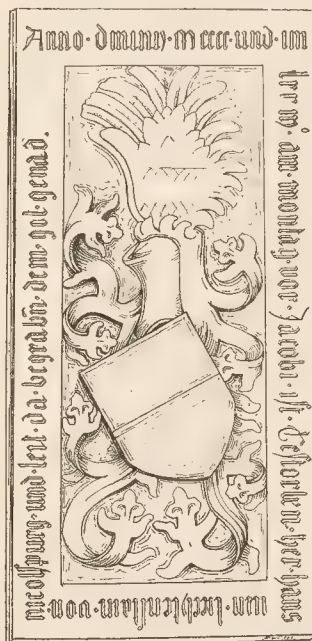 Anno · dminij · m cccc · und · im
am · montag · vor · Jacobi · ist · Gestorben · her · hans
liechtenstain · von ·
nicolspurg · und · leit · da · begrabn · dem · got · genad.